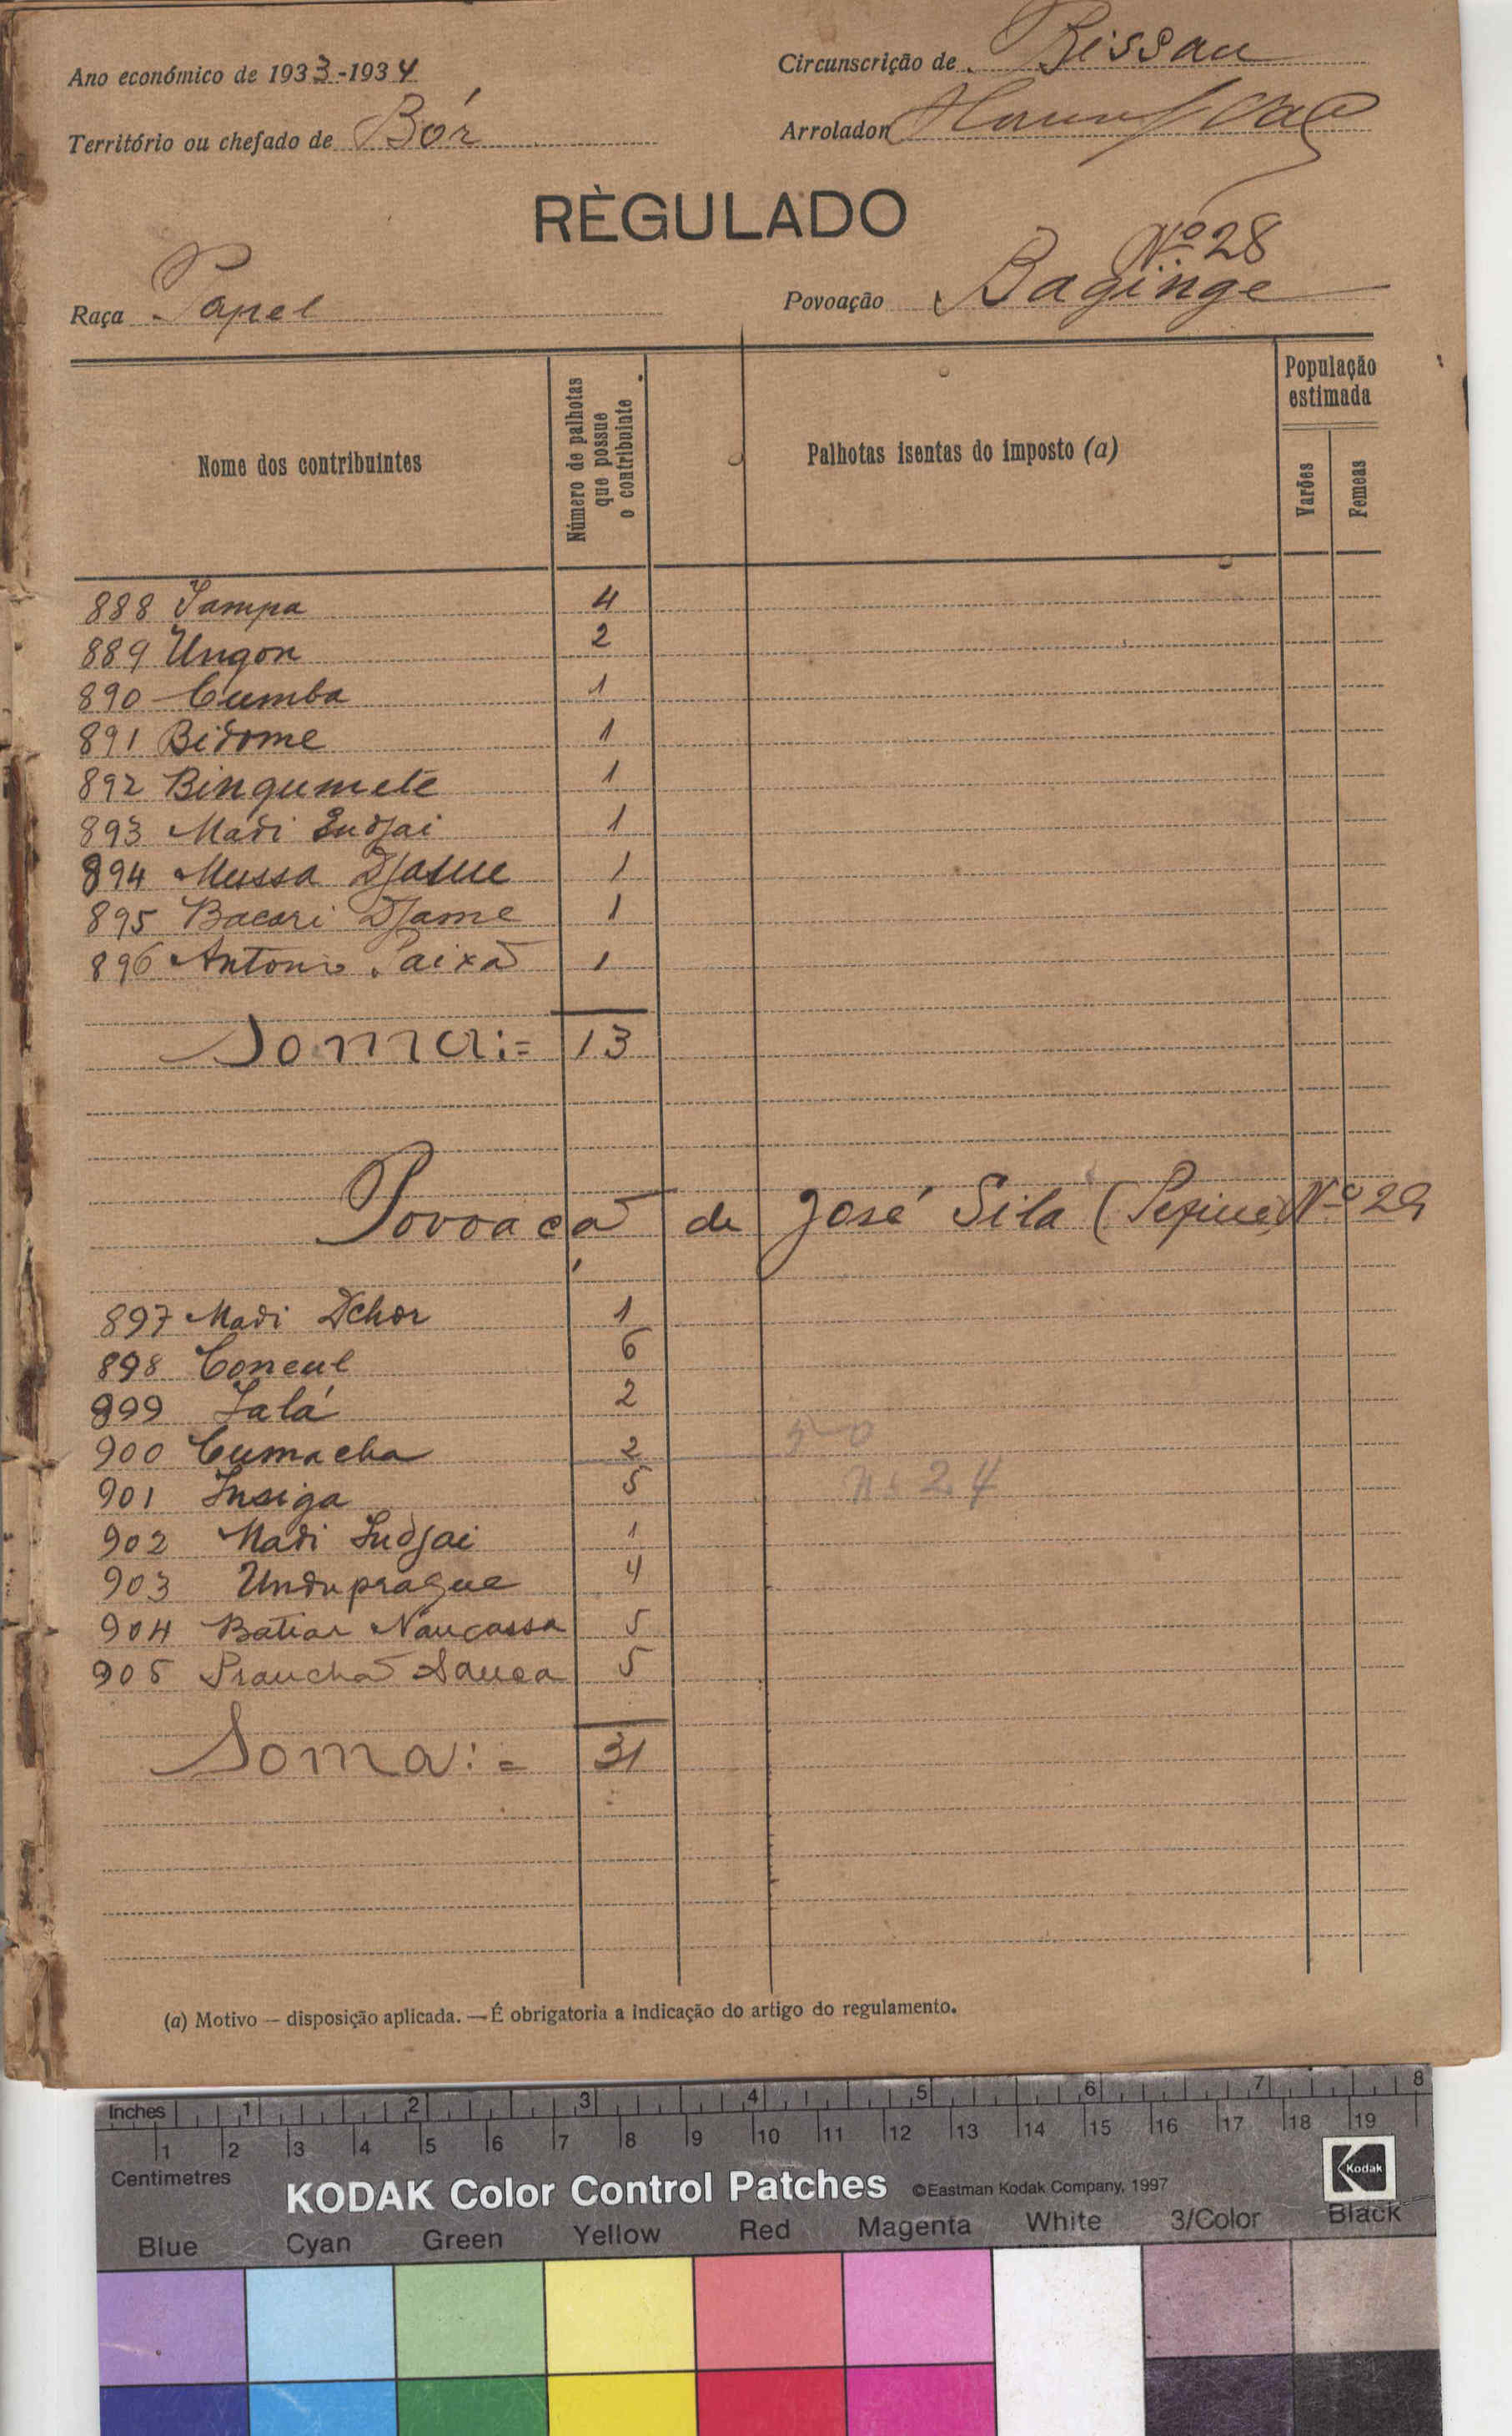 Ano económico de 1933-1934
Circunscrição de Bissau
Território ou chefado de Bór
Arrolador
RÈGULADO
Nº 28
Raça Papel
Povoação Baginge
Nome dos contribuintes
Número de palhotas que possue o contribuinte
Palhotas isentas do imposto (a)
População estimada
Varões
Femeas
888 Sampa 4
889 Ungon 2
890 Cumba 1
891 Bidome 1
892 Bingumete 1
893 Madi Indjai 1
894 Mussa 1
895 Bacari Djame 1
896 Antonio Paixã 1
Soma:= 13
Povoaçã de José Sila ( Nº 29
897 Madi Dchor 1
898 Concul 6
899 Ialá 2
900 Cumacha 2
901 Insiga 5
nº 24
902 Madi Indjai 1
903 Unduprague 4
904 Batiar Naucassa 5
905 Prauchã Sauca 5
Soma:= 31
(a) Motivo — disposição aplicada. — É obrigatoria a indicação do artigo do regulamento.
Inches 1 2 3 4 5 6 7 8
1 2 3 4 5 6 7 8 9 10 11 12 13 14 15 16 17 18 19
Centimetres
KODAK Color Control Patches ©Eastman Kodak Company, 1997
Kodak
Blue Cyan Green Yellow Red Magenta White 3/Color Black